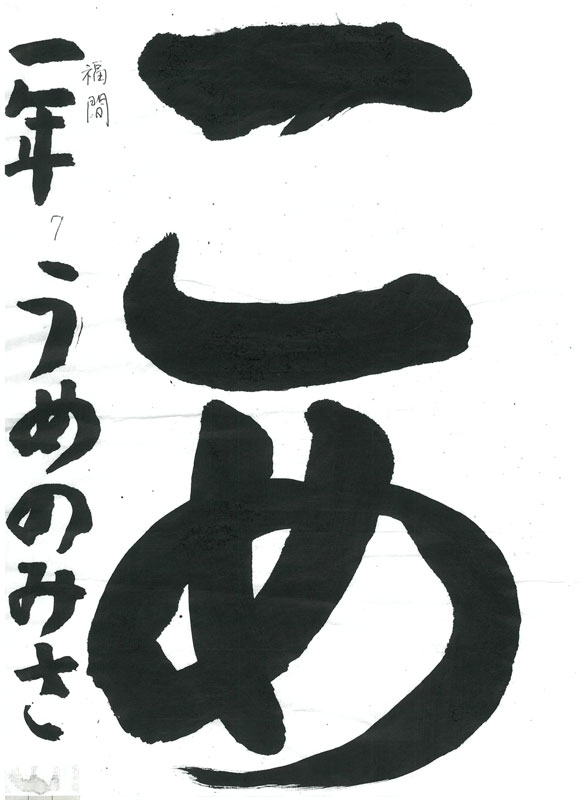 こめ
福間
一年
7
うめのみさ